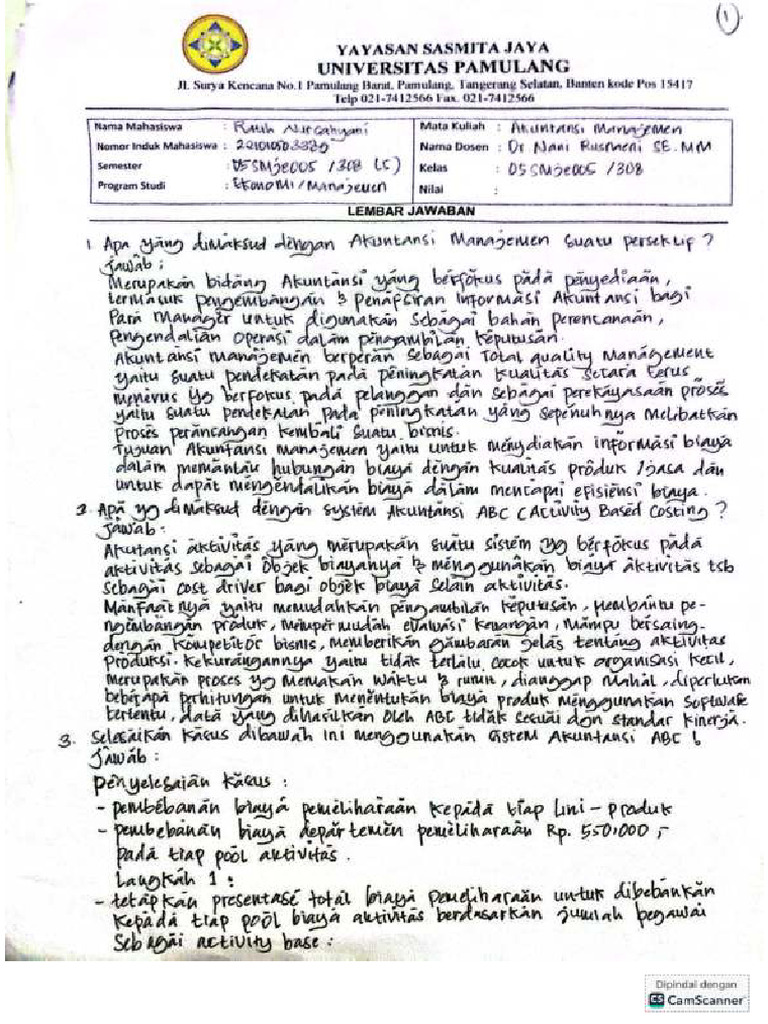 1
YAYASAN SASMITA JAYA
UNIVERSITAS PAMULANG
Jl. Surya Kencana No.1 Pamulang Barat, Pamulang, Tangerang Selatan, Banten kode Pos 15417
Telp 021-7412566 Fax. 021-7412566
Nama Mahasiswa : Ratih Nurcahyani
Nomor Induk Mahasiswa :
Semester : 05SMJE005 / 308 (5)
Program Studi : Ekonomi / Manajemen
Mata Kuliah : Akuntansi Manajemen
Nama Dosen : Dr Nani Rusmeni SE.MM
Kelas : 05SMJE005 / 308
Nilai :
LEMBAR JAWABAN
1. Apa yang dimaksud dengan Akuntansi Manajemen suatu persektif ?
Jawab :
Merupakan bidang Akuntansi yang berfokus pada penyediaan,
termasuk pengembangan & penafsiran informasi Akuntansi bagi
para Manager untuk digunakan sebagai bahan perencanaan,
pengendalian operasi dalam pengambilan keputusan.
Akuntansi manajemen berperan sebagai Total quality Management
yaitu suatu pendekatan pada peningkatan kualitas secara terus
menerus yg berfokus pada pelanggan dan sebagai perekayasaan proses
yaitu suatu pendekatan pada peningkatan yang sepenuhnya melibatkan
proses perancangan kembali suatu bisnis.
Tujuan Akuntansi manajemen yaitu untuk menydiakan informasi biaya
dalam memantau hubungan biaya dengan kualitas produk / jasa dan
untuk dapat mengendalikan biaya dalam mencapai efisiensi biaya.
2. Apa yg dimaksud dengan system Akuntansi ABC (Activity Based Costing ?
Jawab :
Akutansi aktivitas yang merupakan suatu sistem yg berfokus pada
aktivitas sebagai objek biayanya & menggunakan biaya aktivitas tsb
sebagai cost driver bagi objek biaya selain aktivitas.
Manfaatnya yaitu memudahkan pengambilan keputusan, Membantu pe-
ngembangan produk, mempermudah evaluasi keuangan, Mampu bersaing-
dengan kompetitor bisnis, memberikan gambaran jelas tentang aktivitas
produksi. Kekurangannya yaitu tidak terlalu cocok untuk organisasi kecil,
merupakan proses yg memakan waktu & rumit, dianggap mahal, diperlukan
beberapa perhitungan untuk menentukan biaya produk menggunakan software
tertentu, data yang dihasilkan oleh ABC tidak sesuai dgn standar kinerja.
3. Selesaikan kasus dibawah ini menggunakan sistem Akuntansi ABC !
Jawab :
Penyelesaian kasus :
- pembebanan biaya pemeliharaan kepada tiap lini - produk
- pembebanan biaya departemen pemeliharaan Rp. 550.000,-
pada tiap pool aktivitas.
Langkah 1 :
- tetapkan presentase total biaya pemeliharaan untuk dibebankan
kepada tiap pool biaya aktivitas berdasarkan jumlah pegawai
sebagai activity base :
Dipindai dengan
CS CamScanner